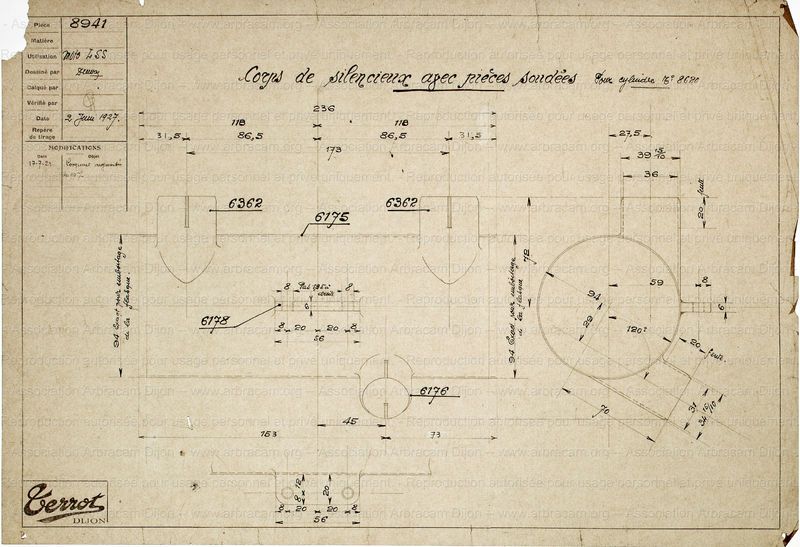 Pièce 8941
Matière
Utilisation Moto LSS
Dessiné par
Calqué par
Vérifié par
Date 2 Juin 1927.
Repère
de tirage
MODIFICATIONS
Date Objet
17-7-29
Corps de silencieux avec pièces soudées Pour cylindre N° 8680
236
118 118
31,5 86,5 86,5 31,5
173
6362 6175 6362
94 Exact pour emboitage
de la flasque.
8 8
6
6178
8 20 20 8
56
94 Exact pour emboitage
de la flasque.
6176
45
153 73
8 12
20
8 20 20 8
56
27,5
39 15/10
36
20
72
59
8
6
94
29
120°
20
70
31
34 10/10
Terrot
DIJON
Association Arbracam Dijon -- www.arbracam.org -- Association Arbracam Dijon
Reproduction autorisée pour usage personnel et privé uniquement